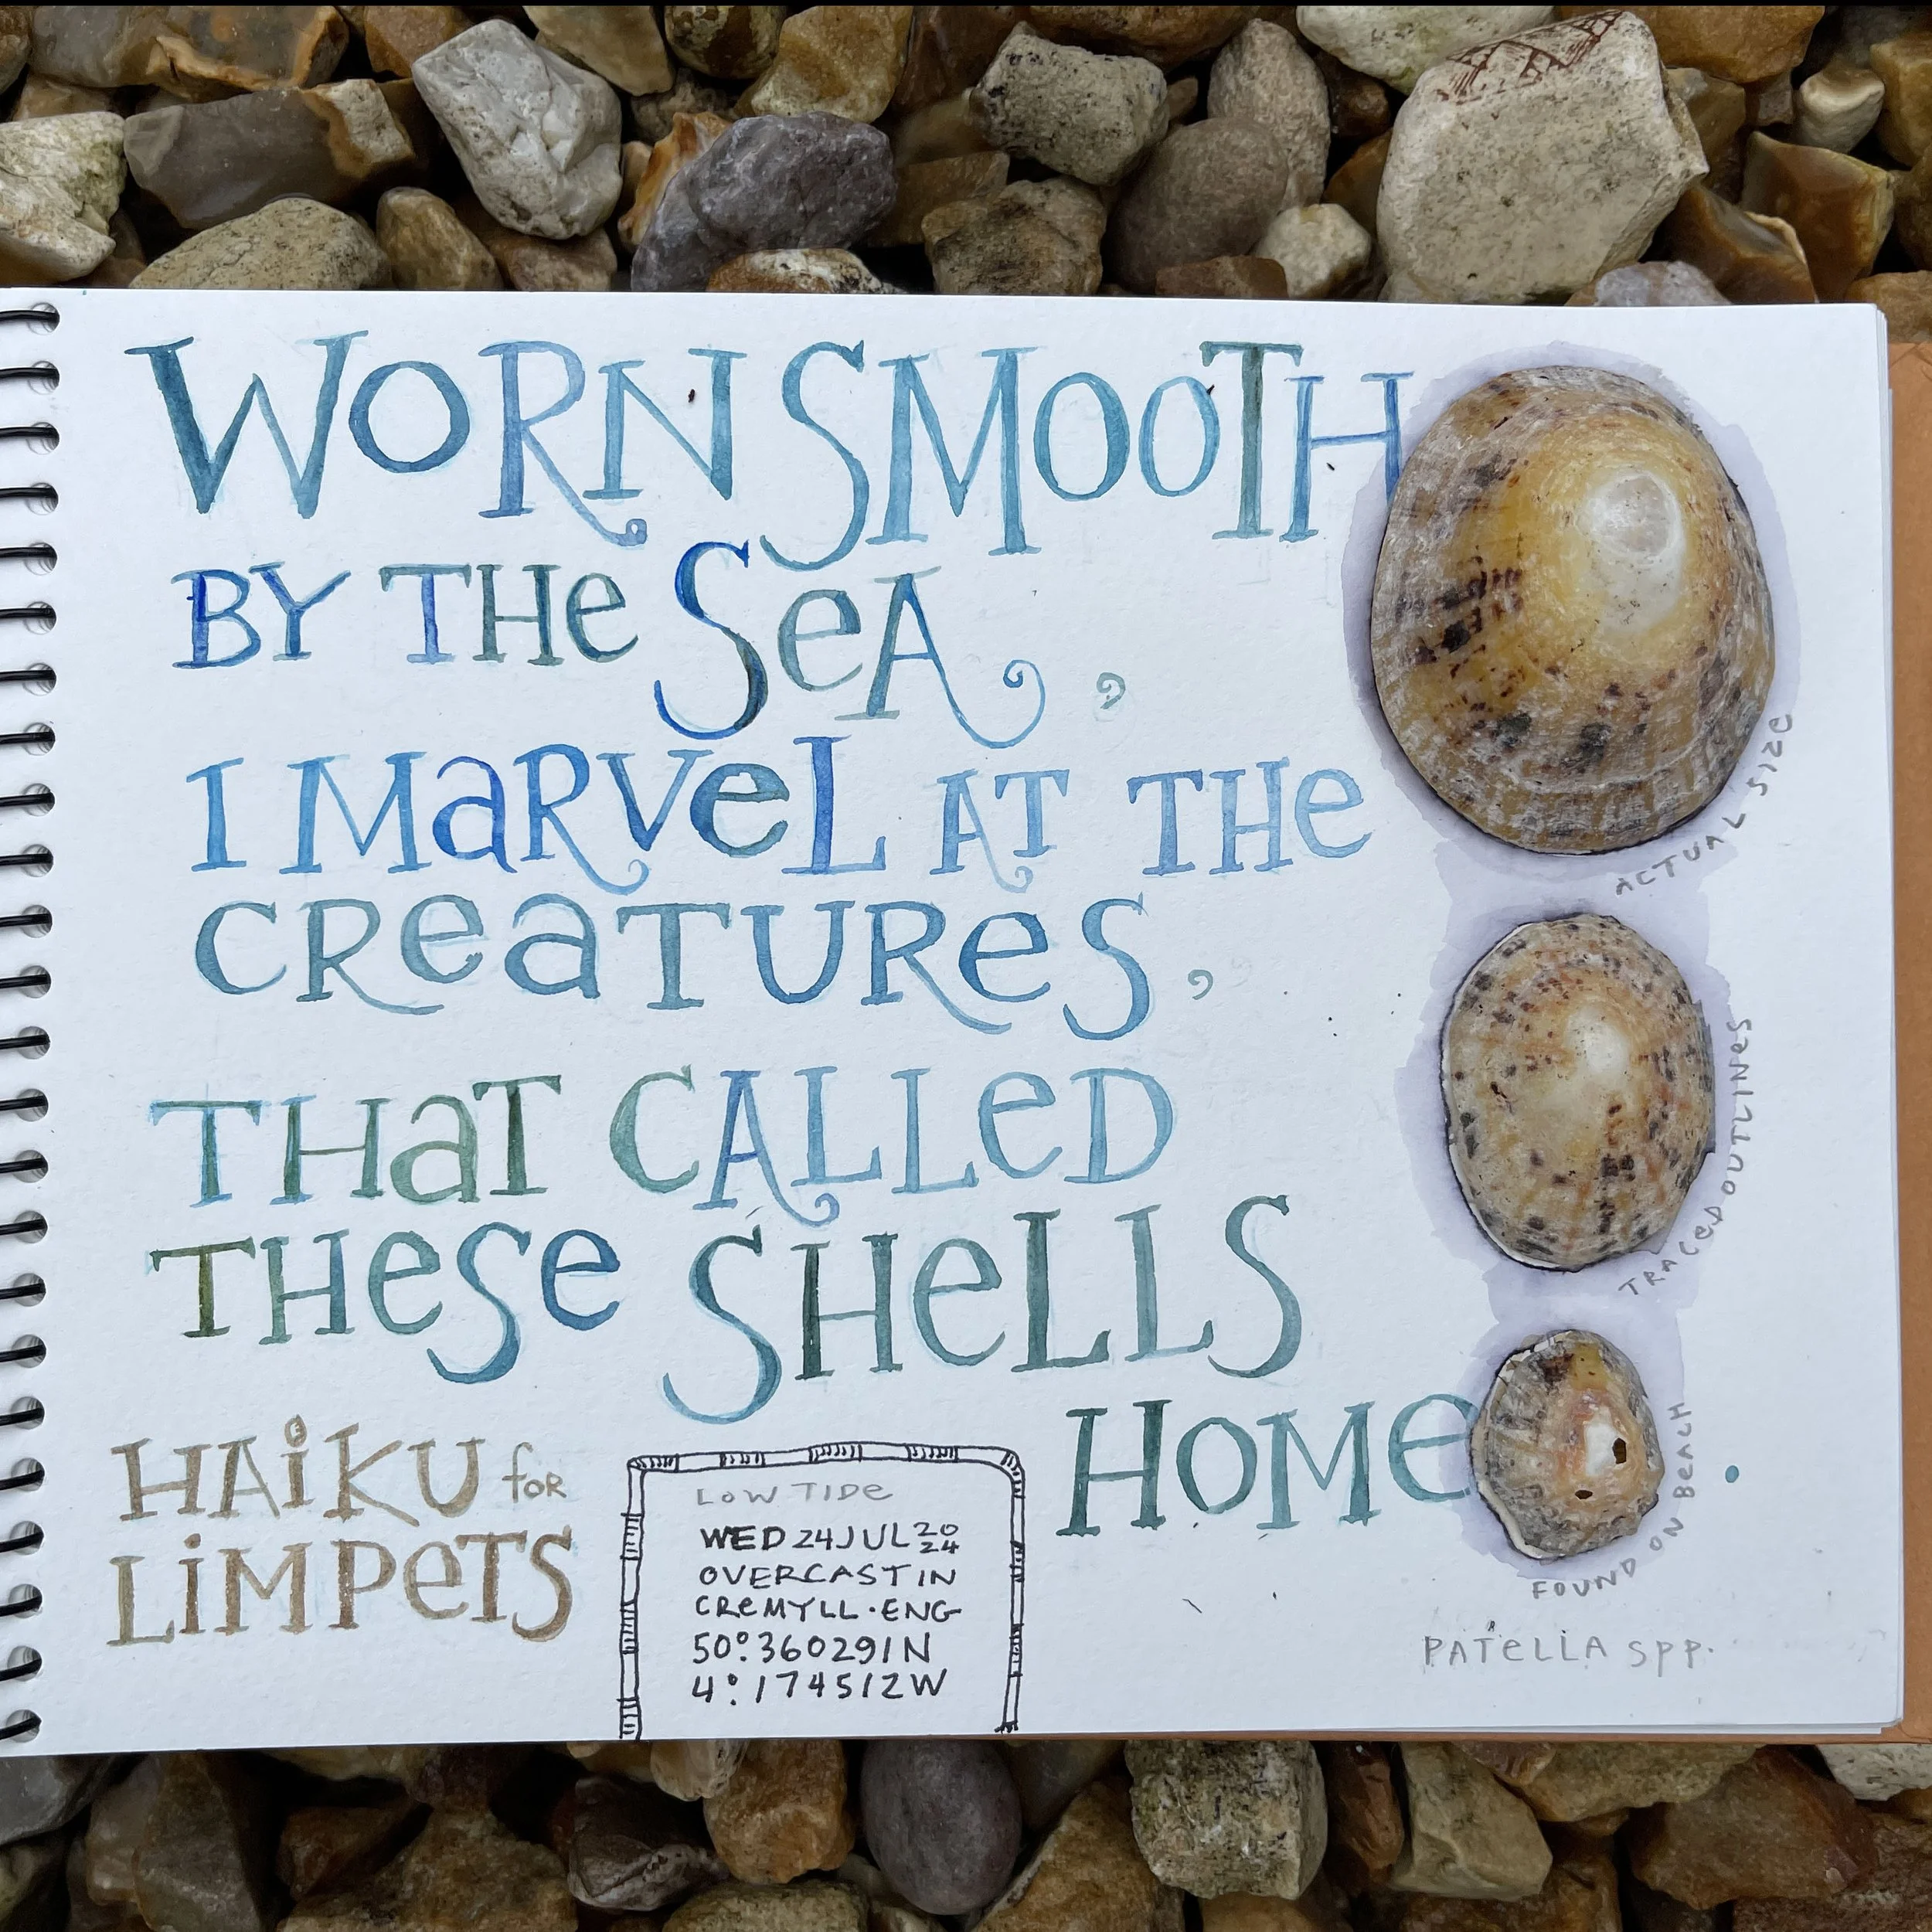 WORN SMOOTH
BY THe SeA,
I MaRVeL AT THe
CReaTURes,
THaT CALLeD
THese SHeLLS
HOMe.
HAiKU foR
LiMPeTS
LOW TIDe
WED 24 JUL 2024
OVERCAST IN
CReMYLL·ENG
50°.360291N
4°.174512W
ACTUAL SIZe
TRACeD OUTLINeS
FOUND ON BeACH
PATeLLA spp.